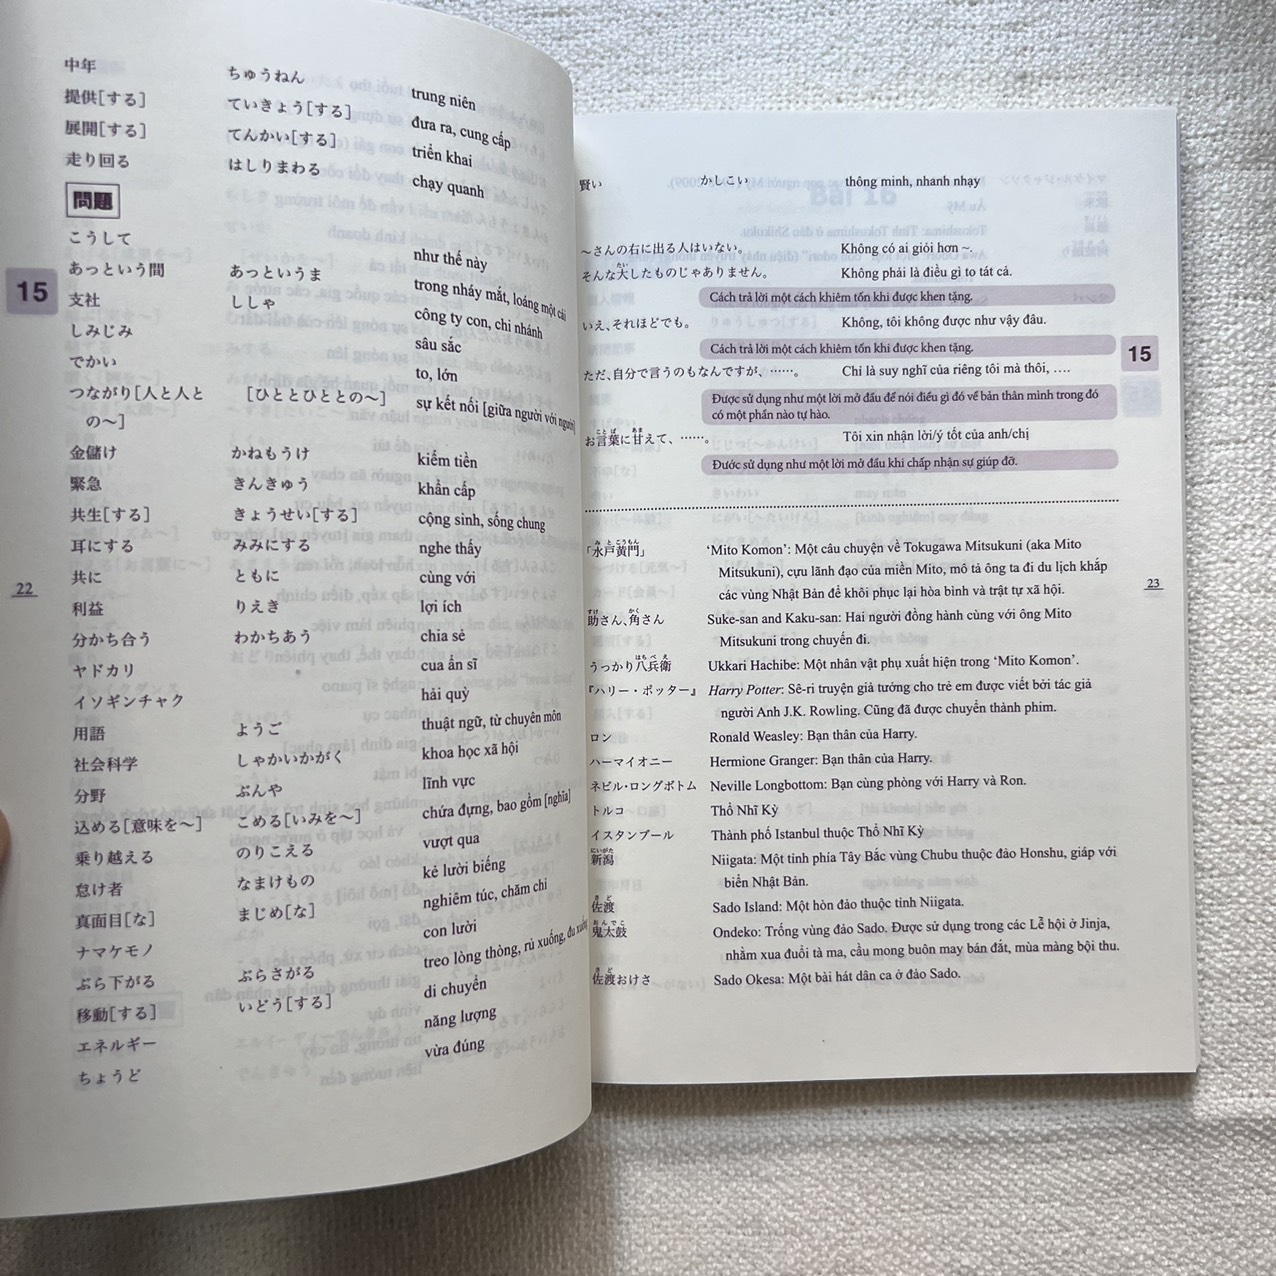 中年 ちゅうねん trung niên
提供[する] ていきょう[する] đưa ra, cung cấp
展開[する] てんかい[する] triển khai
走り回る はしりまわる chạy quanh
問題
こうして như thế này
あっという間 あっというま trong nháy mắt, loáng một cái
15
支社 ししゃ công ty con, chi nhánh
しみじみ sâu sắc
でかい to, lớn
つながり[人と人と [ひととひととの〜] sự kết nối [giữa người với người]
の〜]
金儲け かねもうけ kiếm tiền
緊急 きんきゅう khẩn cấp
共生[する] きょうせい[する] cộng sinh, sống chung
耳にする みみにする nghe thấy
共に ともに cùng với
22
利益 りえき lợi ích
分かち合う わかちあう chia sẻ
ヤドカリ cua ẩn sĩ
イソギンチャク hải quỳ
用語 ようご thuật ngữ, từ chuyên môn
社会科学 しゃかいかがく khoa học xã hội
分野 ぶんや lĩnh vực
込める[意味を〜] こめる[いみを〜] chứa đựng, bao gồm [nghĩa]
乗り越える のりこえる vượt qua
怠け者 なまけもの kẻ lười biếng
真面目[な] まじめ[な] nghiêm túc, chăm chỉ
ナマケモノ con lười
ぶら下がる ぶらさがる treo lòng thòng, rủ xuống, đu xuống
移動[する] いどう[する] di chuyển
エネルギー năng lượng
ちょうど vừa đúng
賢い かしこい thông minh, nhanh nhạy
〜さんの右に出る人はいない。 Không có ai giỏi hơn ~.
そんな大したものじゃありません。 Không phải là điều gì to tát cả.
Cách trả lời một cách khiêm tốn khi được khen tặng.
いえ、それほどでも。 Không, tôi không được như vậy đâu.
Cách trả lời một cách khiêm tốn khi được khen tặng.
15
ただ、自分で言うのもなんですが、……。 Chỉ là suy nghĩ của riêng tôi mà thôi, ….
Được sử dụng như một lời mở đầu để nói điều gì đó về bản thân mình trong đó
có một phần nào tự hào.
お言葉に甘えて、……。 Tôi xin nhận lời/ý tốt của anh/chị
Đước sử dụng như một lời mở đầu khi chấp nhận sự giúp đỡ.
「水戸黄門」 ‘Mito Komon’: Một câu chuyện về Tokugawa Mitsukuni (aka Mito
Mitsukuni), cựu lãnh đạo của miền Mito, mô tả ông ta đi du lịch khắp
các vùng Nhật Bản để khôi phục lại hòa bình và trật tự xã hội.
23
助さん、角さん Suke-san and Kaku-san: Hai người đồng hành cùng với ông Mito
Mitsukuni trong chuyến đi.
うっかり八兵衛 Ukkari Hachibe: Một nhân vật phụ xuất hiện trong ‘Mito Komon’.
『ハリー・ポッター』 Harry Potter: Sê-ri truyện giả tưởng cho trẻ em được viết bởi tác giả
người Anh J.K. Rowling. Cũng đã được chuyển thành phim.
ロン Ronald Weasley: Bạn thân của Harry.
ハーマイオニー Hermione Granger: Bạn thân của Harry.
ネビル・ロングボトム Neville Longbottom: Bạn cùng phòng với Harry và Ron.
トルコ Thổ Nhĩ Kỳ
イスタンブール Thành phố Istanbul thuộc Thổ Nhĩ Kỳ
新潟 Niigata: Một tỉnh phía Tây Bắc vùng Chubu thuộc đảo Honshu, giáp với
biển Nhật Bản.
佐渡 Sado Island: Một hòn đảo thuộc tỉnh Niigata.
鬼太鼓 Ondeko: Trống vùng đảo Sado. Được sử dụng trong các Lễ hội ở Jinja,
nhằm xua đuổi tà ma, cầu mong buôn may bán đắt, mùa màng bội thu.
佐渡おけさ Sado Okesa: Một bài hát dân ca ở đảo Sado.